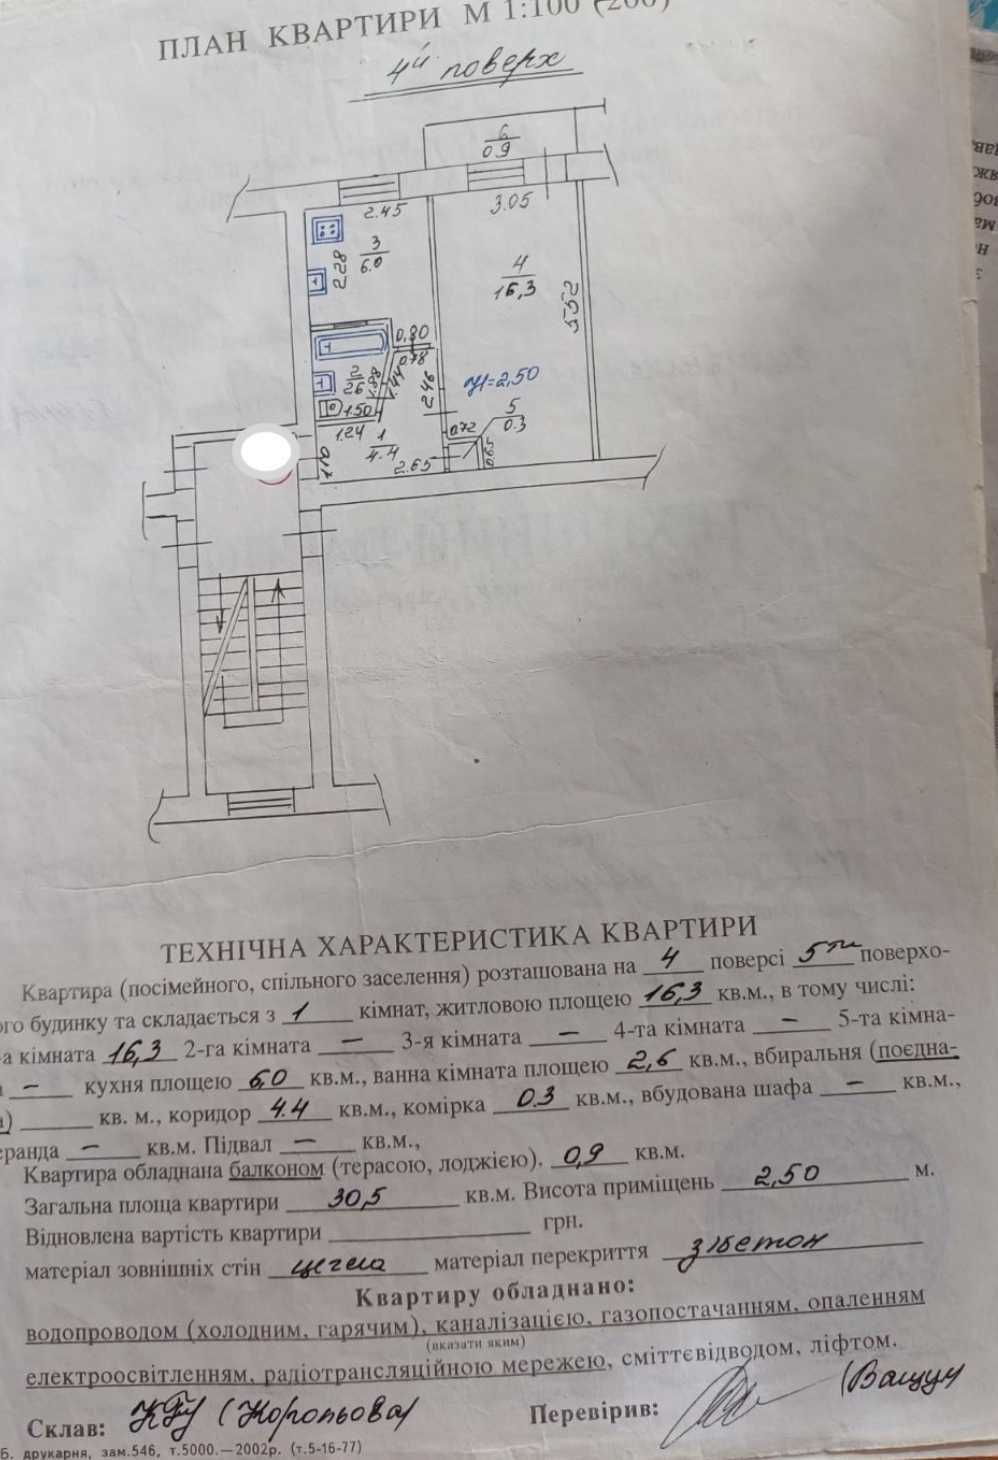 ПЛАН КВАРТИРИ М 1:100 (200)
4й поверх
6
0.9
2.45
3.05
3
6.0
2.28
4
16,3
5.52
0.80
0.78
2
2.6
1.88
1.44
2.46
н=2,50
1.50
1.24
5
0.3
0.72
0.65
1
4.4
1.10
2.65
ТЕХНІЧНА ХАРАКТЕРИСТИКА КВАРТИРИ
Квартира (посімейного, спільного заселення) розташована на 4 поверсі 5ти поверхо-
ого будинку та складається з 1 кімнат, житловою площею 16,3 кв.м., в тому числі:
-а кімната 16,3 2-га кімната — 3-я кімната — 4-та кімната — 5-та кімна-
— кухня площею 6,0 кв.м., ванна кімната площею 2,6 кв.м., вбиральня (поєдна-
а) кв. м., коридор 4.4 кв.м., комірка 0.3 кв.м., вбудована шафа — кв.м.,
еранда — кв.м. Підвал — кв.м.,
Квартира обладнана балконом (терасою, лоджією). 0,9 кв.м.
Загальна площа квартири 30,5 кв.м. Висота приміщень 2,50 м.
Відновлена вартість квартири грн.
матеріал зовнішніх стін цегла матеріал перекриття з/бетон
Квартиру обладнано:
водопроводом (холодним, гарячим), каналізацією, газопостачанням, опаленням
(вказати яким)
електроосвітленням, радіотрансляційною мережею, сміттєвідводом, ліфтом.
Склав: Перевірив:
Б. друкарня, зам.546, т.5000.—2002р. (т.5-16-77)